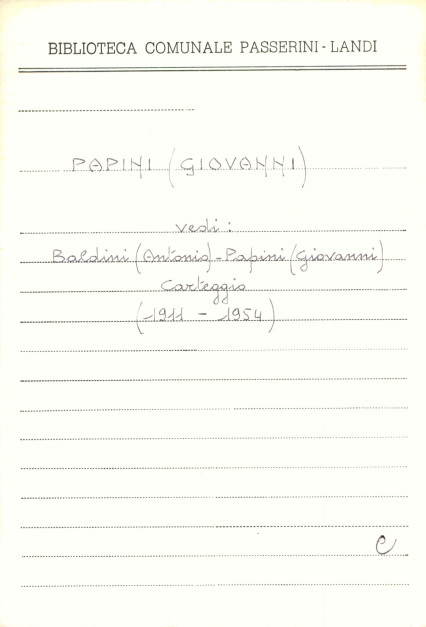 BIBLIOTECA COMUNALE PASSERINI-LANDI
PAPINI (GIOVANNI)
vedi:
Baldini (Antonio)-Papini (Giovanni)
Carteggio
(1911 - 1954)
C